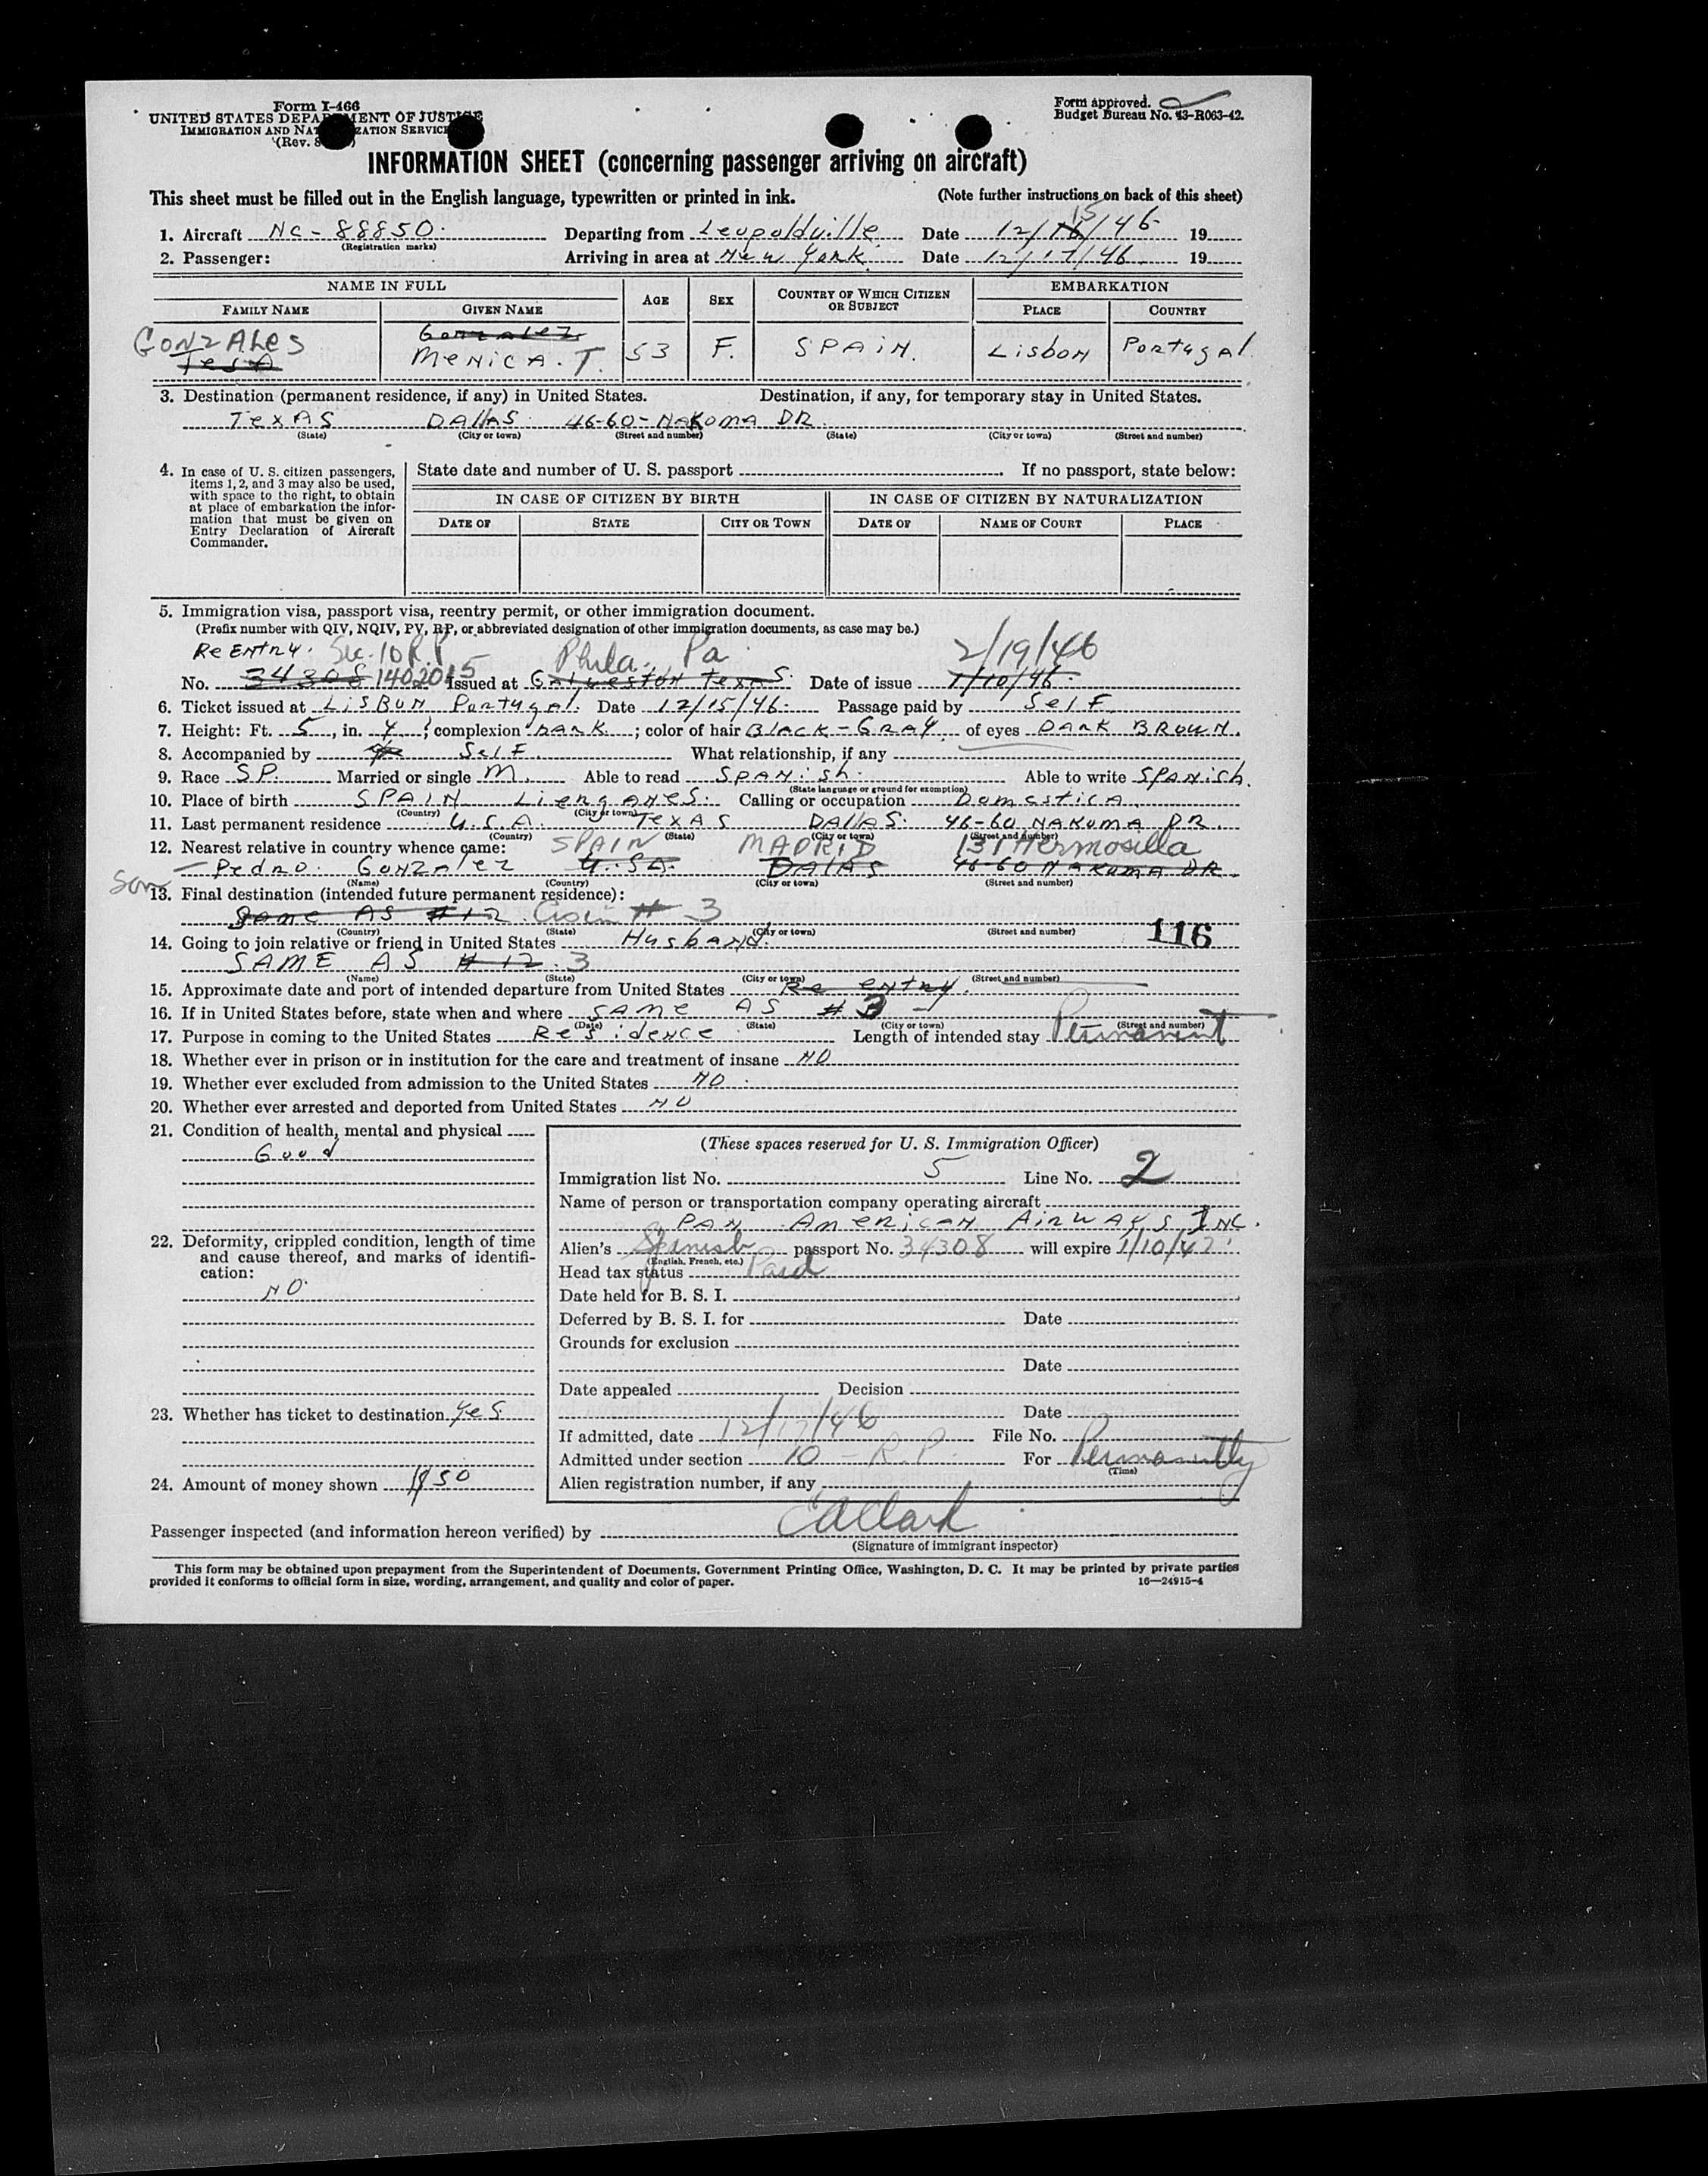 Form I-466
UNITED STATES DEPARTMENT OF JUSTICE
IMMIGRATION AND NATURALIZATION SERVICE
(Rev. 8
Form approved.
Budget Bureau No. 43-R063-42.
INFORMATION SHEET (concerning passenger arriving on aircraft)
This sheet must be filled out in the English language, typewritten or printed in ink. (Note further instructions on back of this sheet)
15
1. Aircraft NC-88850. Departing from Leopoldville Date 12/16/46 19
(Registration marks)
2. Passenger: Arriving in area at New York. Date 12/17/46 19
NAME IN FULL AGE SEX COUNTRY OF WHICH CITIZEN OR SUBJECT EMBARKATION
FAMILY NAME GIVEN NAME PLACE COUNTRY
GONZALES Gonzalez
Tesa MENICA. T. 53 F. SPAIN. Lisbon Portugal
3. Destination (permanent residence, if any) in United States. Destination, if any, for temporary stay in United States.
TEXAS DALLAS 46-60-NAKOMA DR.
(State) (City or town) (Street and number) (State) (City or town) (Street and number)
4. In case of U. S. citizen passengers, items 1, 2, and 3 may also be used, with space to the right, to obtain at place of embarkation the information that must be given on Entry Declaration of Aircraft Commander.
State date and number of U. S. passport If no passport, state below:
IN CASE OF CITIZEN BY BIRTH IN CASE OF CITIZEN BY NATURALIZATION
DATE OF STATE CITY OR TOWN DATE OF NAME OF COURT PLACE
5. Immigration visa, passport visa, reentry permit, or other immigration document.
(Prefix number with QIV, NQIV, PV, RP, or abbreviated designation of other immigration documents, as case may be.)
Re Entry. Sec. 10 R.P. Phila. Pa 2/19/46
No. 34308 1402015 Issued at Galveston Texas. Date of issue 1/10/46.
6. Ticket issued at LISBON Portugal. Date 12/15/46. Passage paid by Self
7. Height: Ft. 5, in. 4; complexion DARK; color of hair Black-GRAY of eyes DARK BROWN.
8. Accompanied by Self. What relationship, if any
9. Race SP. Married or single M. Able to read SPANish. Able to write SPANish.
(State language or ground for exemption)
10. Place of birth SPAIN Lierganes. Calling or occupation Domestica
(Country) (City or town)
11. Last permanent residence U.S.A. TEXAS DALLAS. 46-60 NAKOMA DR.
(Country) (State) (City or town) (Street and number)
12. Nearest relative in country whence came: SPAIN MADRID 131 Hermosilla
Son Pedro. Gonzalez U.SA. DALAS 46-60 NAKOMA DR.
(Name) (Country) (City or town) (Street and number)
13. Final destination (intended future permanent residence):
Same AS #12 # 3
(Country) (State) (City or town) (Street and number)
116
14. Going to join relative or friend in United States Husband.
SAME AS #12. 3
(Name) (State) (City or town) (Street and number)
15. Approximate date and port of intended departure from United States Re entry.
16. If in United States before, state when and where SAME AS # 3
(Date) (State) (City or town) (Street and number)
17. Purpose in coming to the United States Residence Length of intended stay Permanent
18. Whether ever in prison or in institution for the care and treatment of insane NO
19. Whether ever excluded from admission to the United States NO.
20. Whether ever arrested and deported from United States NO
21. Condition of health, mental and physical
Good
22. Deformity, crippled condition, length of time and cause thereof, and marks of identification:
NO.
23. Whether has ticket to destination yes.
24. Amount of money shown $50
(These spaces reserved for U. S. Immigration Officer)
Immigration list No. 5 Line No. 2
Name of person or transportation company operating aircraft
PAN AMERICAN AIRWAYS INC.
Alien's Spanish passport No. 34308 will expire 1/10/47
(English, French, etc.)
Head tax status Paid
Date held for B. S. I.
Deferred by B. S. I. for Date
Grounds for exclusion
Date
Date appealed Decision
Date
If admitted, date 12/17/46 File No.
Admitted under section 10 - R.P. For Permanently
(Time)
Alien registration number, if any
Passenger inspected (and information hereon verified) by CA Clark
(Signature of immigrant inspector)
This form may be obtained upon prepayment from the Superintendent of Documents, Government Printing Office, Washington, D. C. It may be printed by private parties
provided it conforms to official form in size, wording, arrangement, and quality and color of paper. 16—24915-4